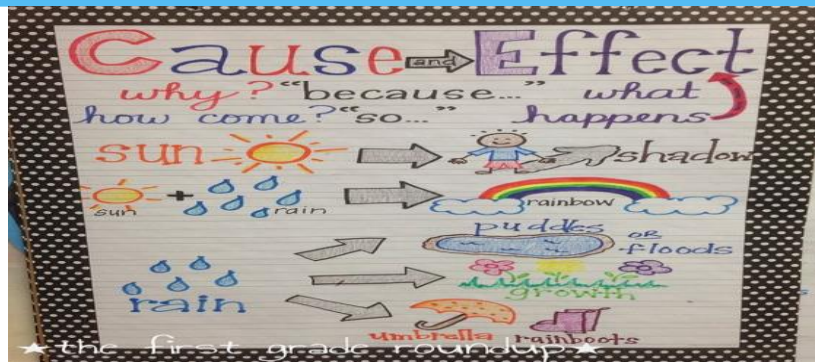 Cause and Effect
why? "because..." what
how come? "so..." happens
sun shadow
sun + rain rainbow
puddles OR floods
rain growth
umbrella rainboots
★the first grade roundup★